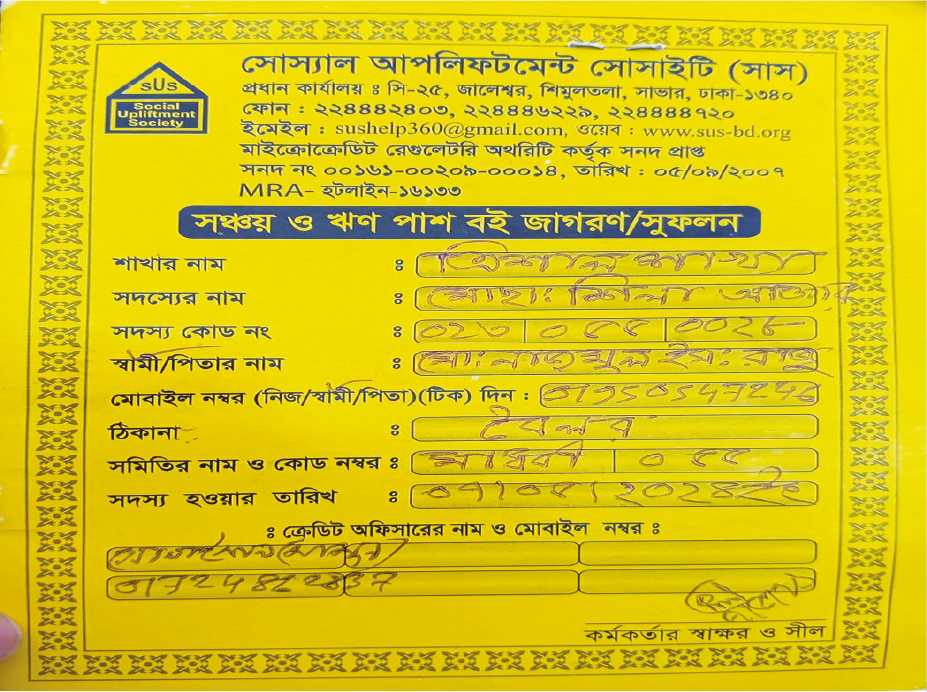 sUs
Social
Upliftment
Society
সোস্যাল আপলিফটমেন্ট সোসাইটি (সাস)
প্রধান কার্যালয় ঃ সি-২৫, জালেশ্বর, শিমুলতলা, সাভার, ঢাকা-১৩৪০
ফোন : ২২৪৪৪২৪০৩, ২২৪৪৪৬২২৯, ২২৪৪৪৪৭২০
ইমেইল : sushelp360@gmail.com, ওয়েব : www.sus-bd.org
মাইক্রোক্রেডিট রেগুলেটরি অথরিটি কর্তৃক সনদ প্রাপ্ত
সনদ নং ০০১৬১-০০২০৯-০০০১৪, তারিখ : ০৫/০৯/২০০৭
MRA- হটলাইন-১৬১৩৩
সঞ্চয় ও ঋণ পাশ বই জাগরণ/সুফলন
শাখার নাম ঃ ত্রিশাল শাখা
সদস্যের নাম ঃ মোছাঃ শিলা আক্তার
সদস্য কোড নং ঃ
স্বামী/পিতার নাম ঃ মোঃ
মোবাইল নম্বর (নিজ/স্বামী/পিতা)(টিক) দিন : 01950547246
ঠিকানা ঃ বৈলর
সমিতির নাম ও কোড নম্বর ঃ মাধবী
সদস্য হওয়ার তারিখ ঃ
ঃ ক্রেডিট অফিসারের নাম ও মোবাইল নম্বর ঃ
কর্মকর্তার স্বাক্ষর ও সীল